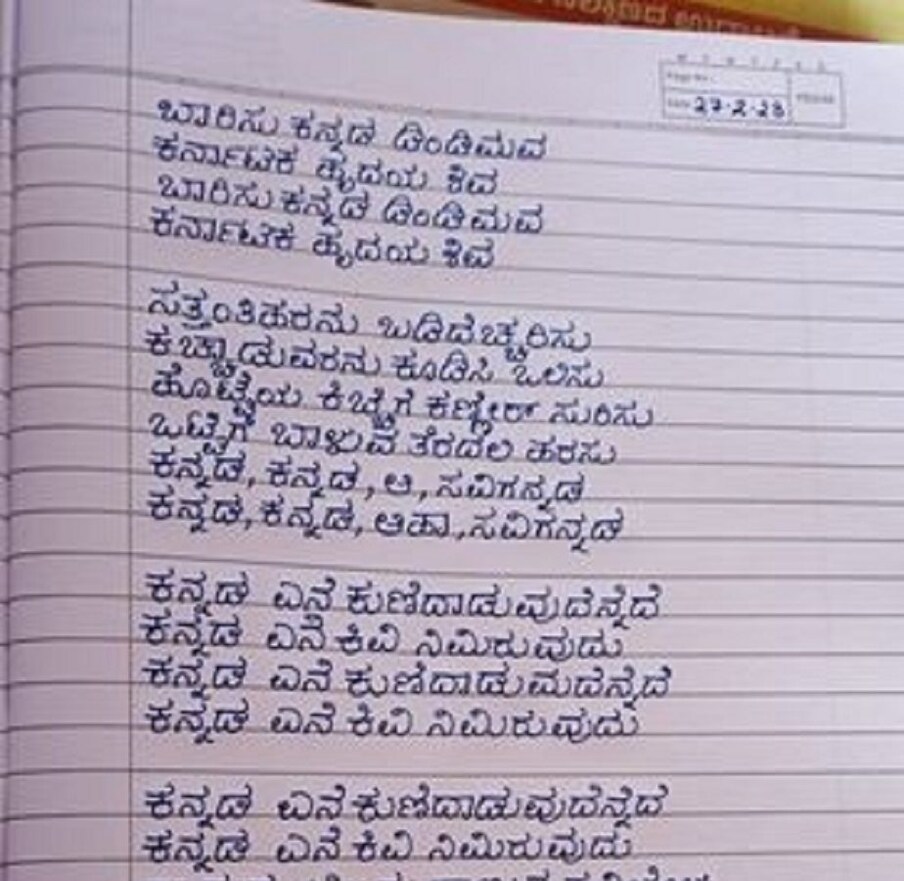 27-2-23
ಬಾರಿಸು ಕನ್ನಡ ಡಿಂಡಿಮವ
ಕರ್ನಾಟಕ ಹೃದಯ ಶಿವ
ಬಾರಿಸು ಕನ್ನಡ ಡಿಂಡಿಮವ
ಕರ್ನಾಟಕ ಹೃದಯ ಶಿವ
ಸತ್ತಂತಿಹರನು ಬಡಿದೆಚ್ಚರಿಸು
ಕಚ್ಚಾಡುವರನು ಕೂಡಿಸಿ ಒಲಿಸು
ಹೊಟ್ಟೆಯ ಕಿಚ್ಚಿಗೆ ಕಣ್ಣೀರ್ ಸುರಿಸು
ಒಟ್ಟಿಗೆ ಬಾಳುವ ತೆರದಲಿ ಹರಸು
ಕನ್ನಡ, ಕನ್ನಡ, ಆ, ಸವಿಗನ್ನಡ
ಕನ್ನಡ, ಕನ್ನಡ, ಆಹಾ, ಸವಿಗನ್ನಡ
ಕನ್ನಡ ಎನೆ ಕುಣಿದಾಡುವುದೆನ್ನೆದೆ
ಕನ್ನಡ ಎನೆ ಕಿವಿ ನಿಮಿರುವುದು
ಕನ್ನಡ ಎನೆ ಕುಣಿದಾಡುಮದೆನ್ನೆದೆ
ಕನ್ನಡ ಎನೆ ಕಿವಿ ನಿಮಿರುವುದು
ಕನ್ನಡ ಎನೆ ಕುಣಿದಾಡುವುದೆನ್ನೆದೆ
ಕನ್ನಡ ಎನೆ ಕಿವಿ ನಿಮಿರುವುದು